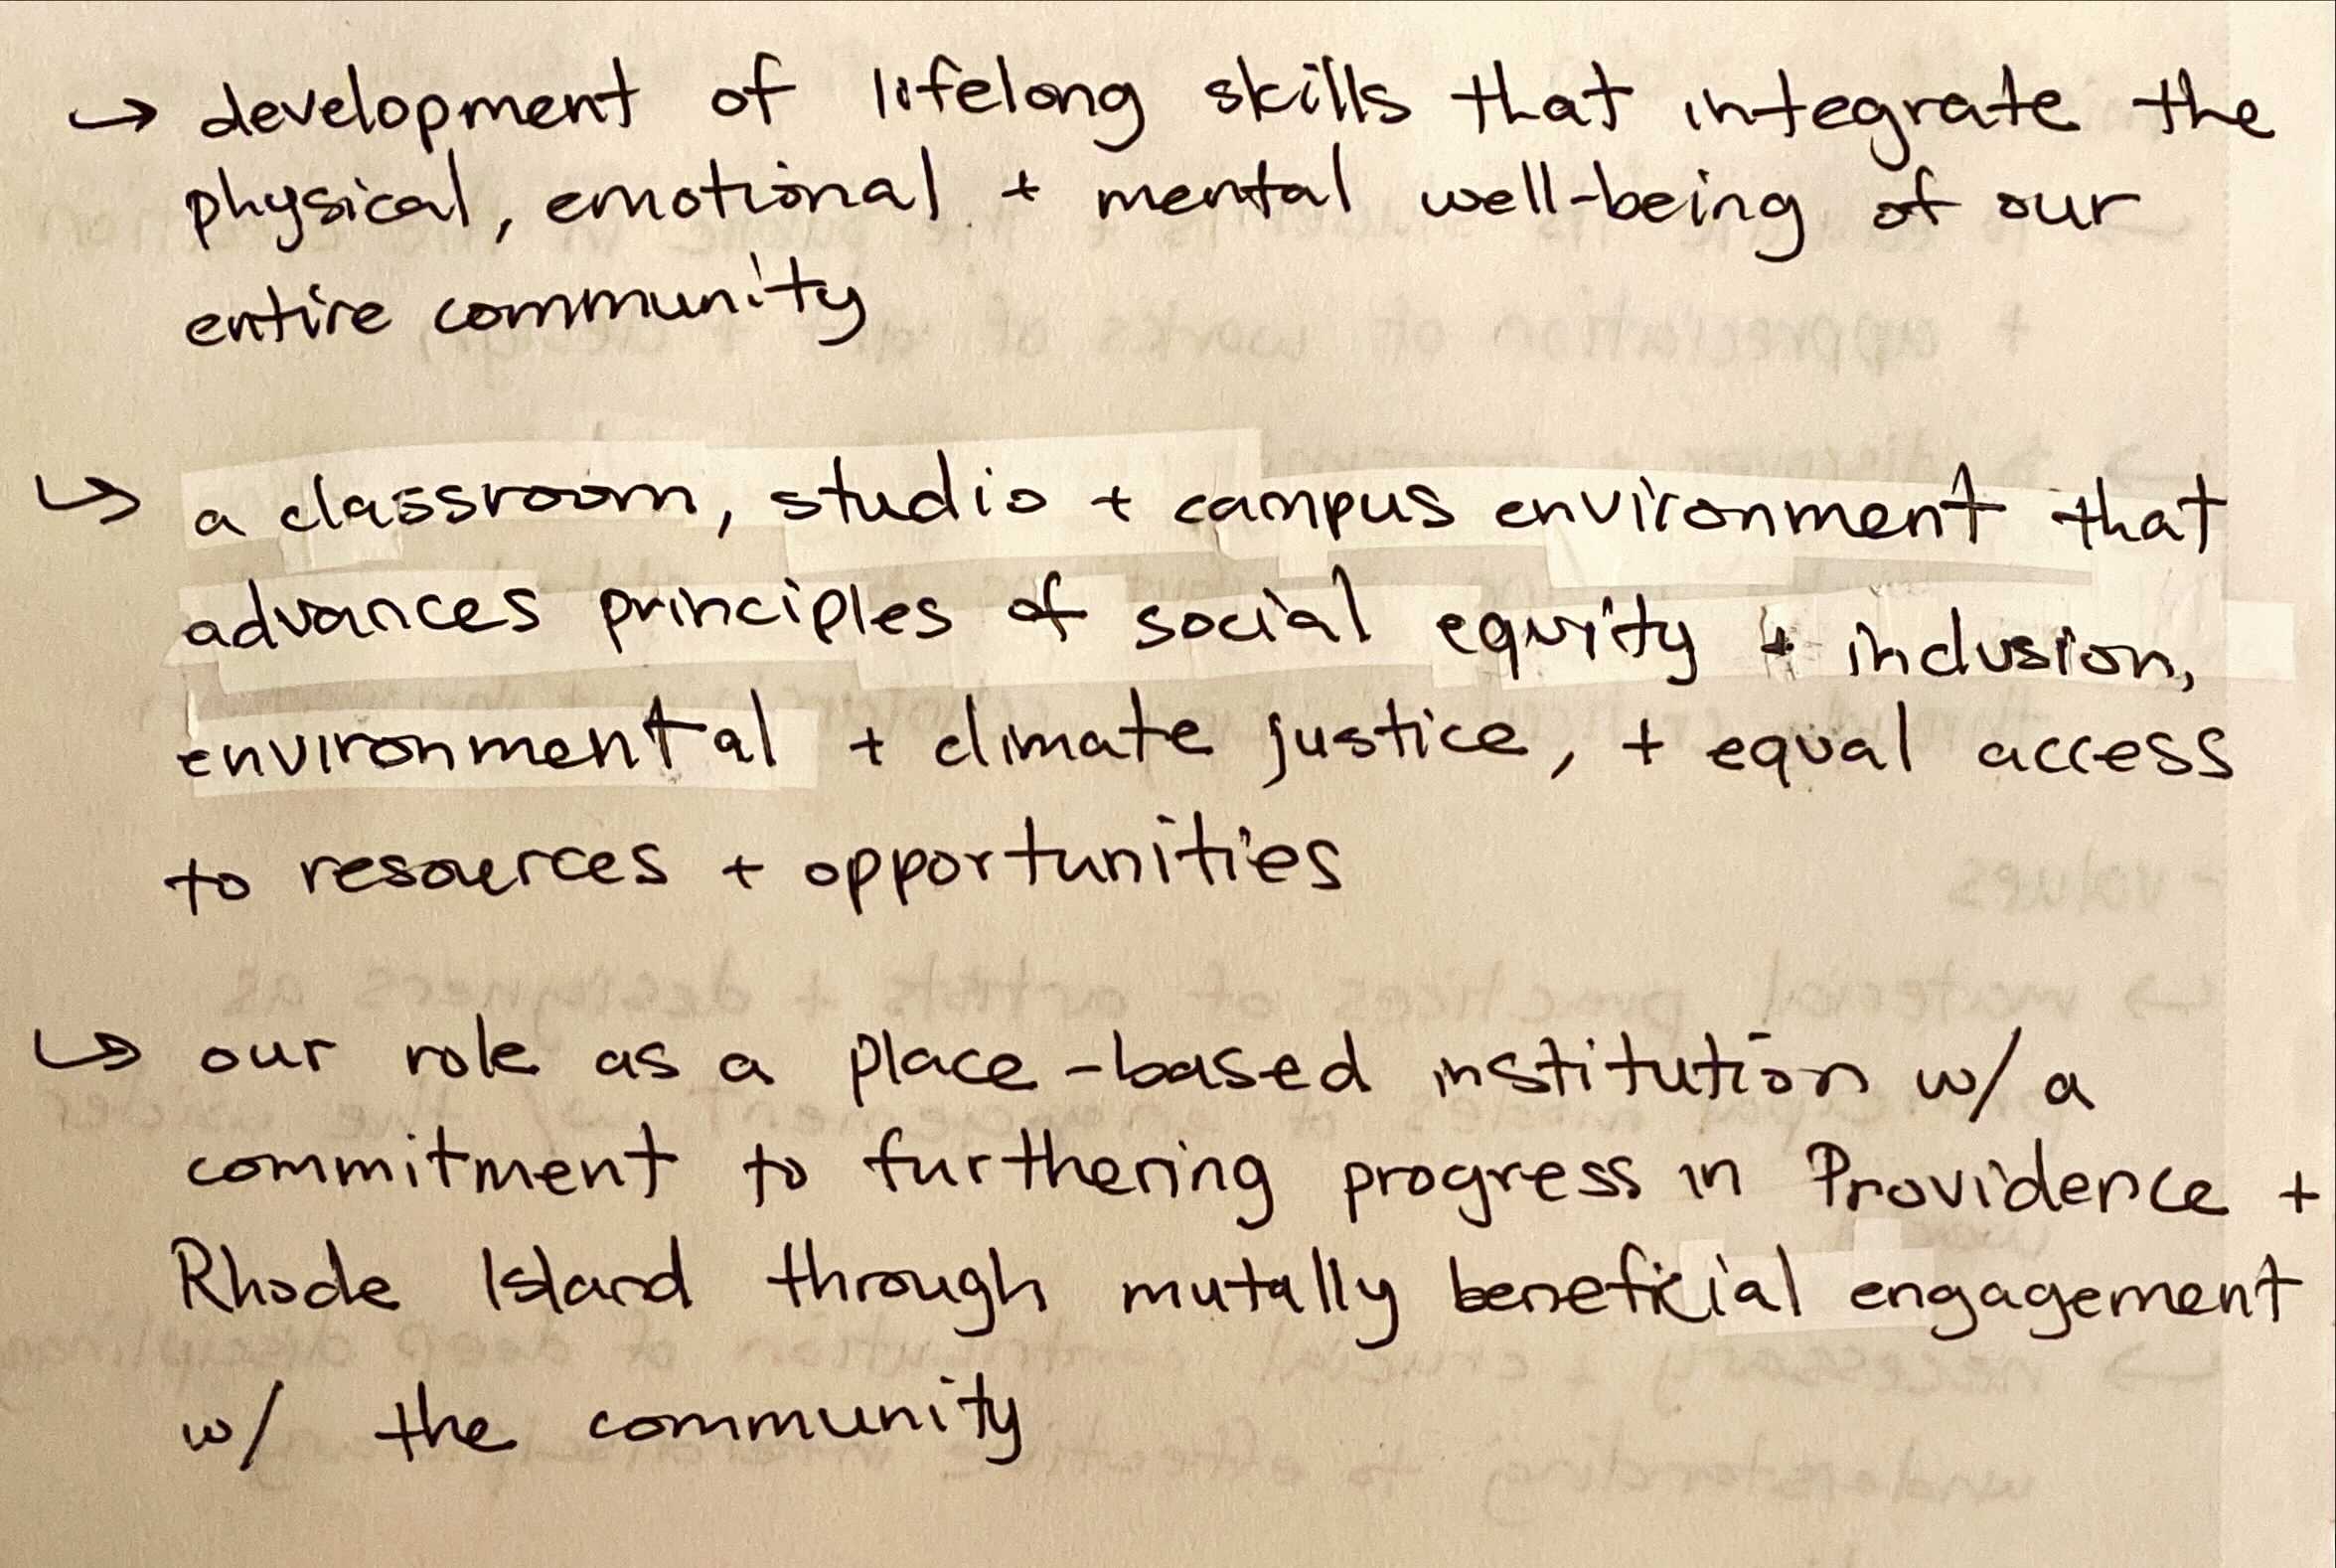 → development of lifelong skills that integrate the
physical, emotional + mental well-being of our
entire community
↳ a classroom, studio + campus environment that
advances principles of social equity + inclusion,
environmental + climate justice, + equal access
to resources + opportunities
↳ our role as a place-based institution w/ a
commitment to furthering progress in Providence +
Rhode Island through mutally beneficial engagement
w/ the community